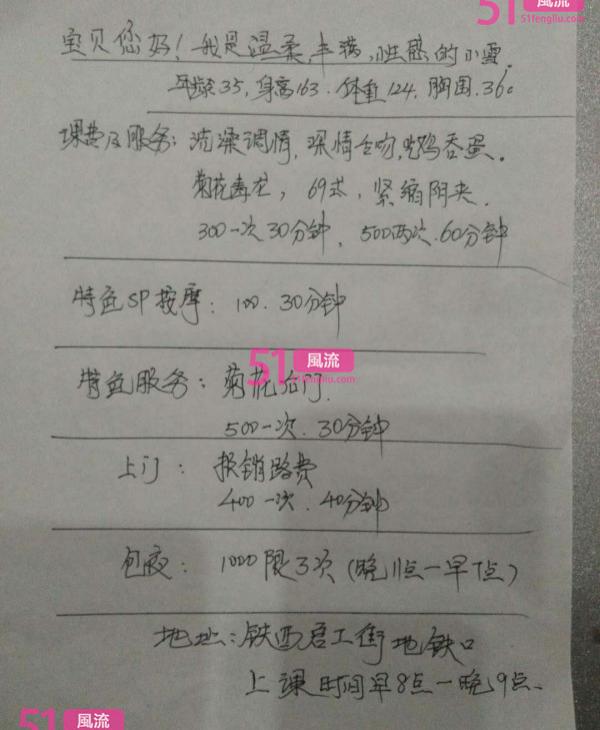 51風流
51fengliu.com
宝贝您好！我是温柔,丰满,性感的小雪
年龄35,身高163.体重124.胸围.36。
课费及服务：洗澡调情,深情全吻,吃鸡吞蛋.
菊花毒龙，69式,紧缩阴夹.
300一次30分钟、500两次.60分钟
特色SP按摩：100.30分钟
51風流
51fengliu.com
特色服务：菊花后门.
500一次.30分钟
上门：报销路费
400一次.40分钟
包夜：1000限3次(晚11点一早7点)
地址：铁西启工街地铁口
上课时间早8点一晚9点.
51風流